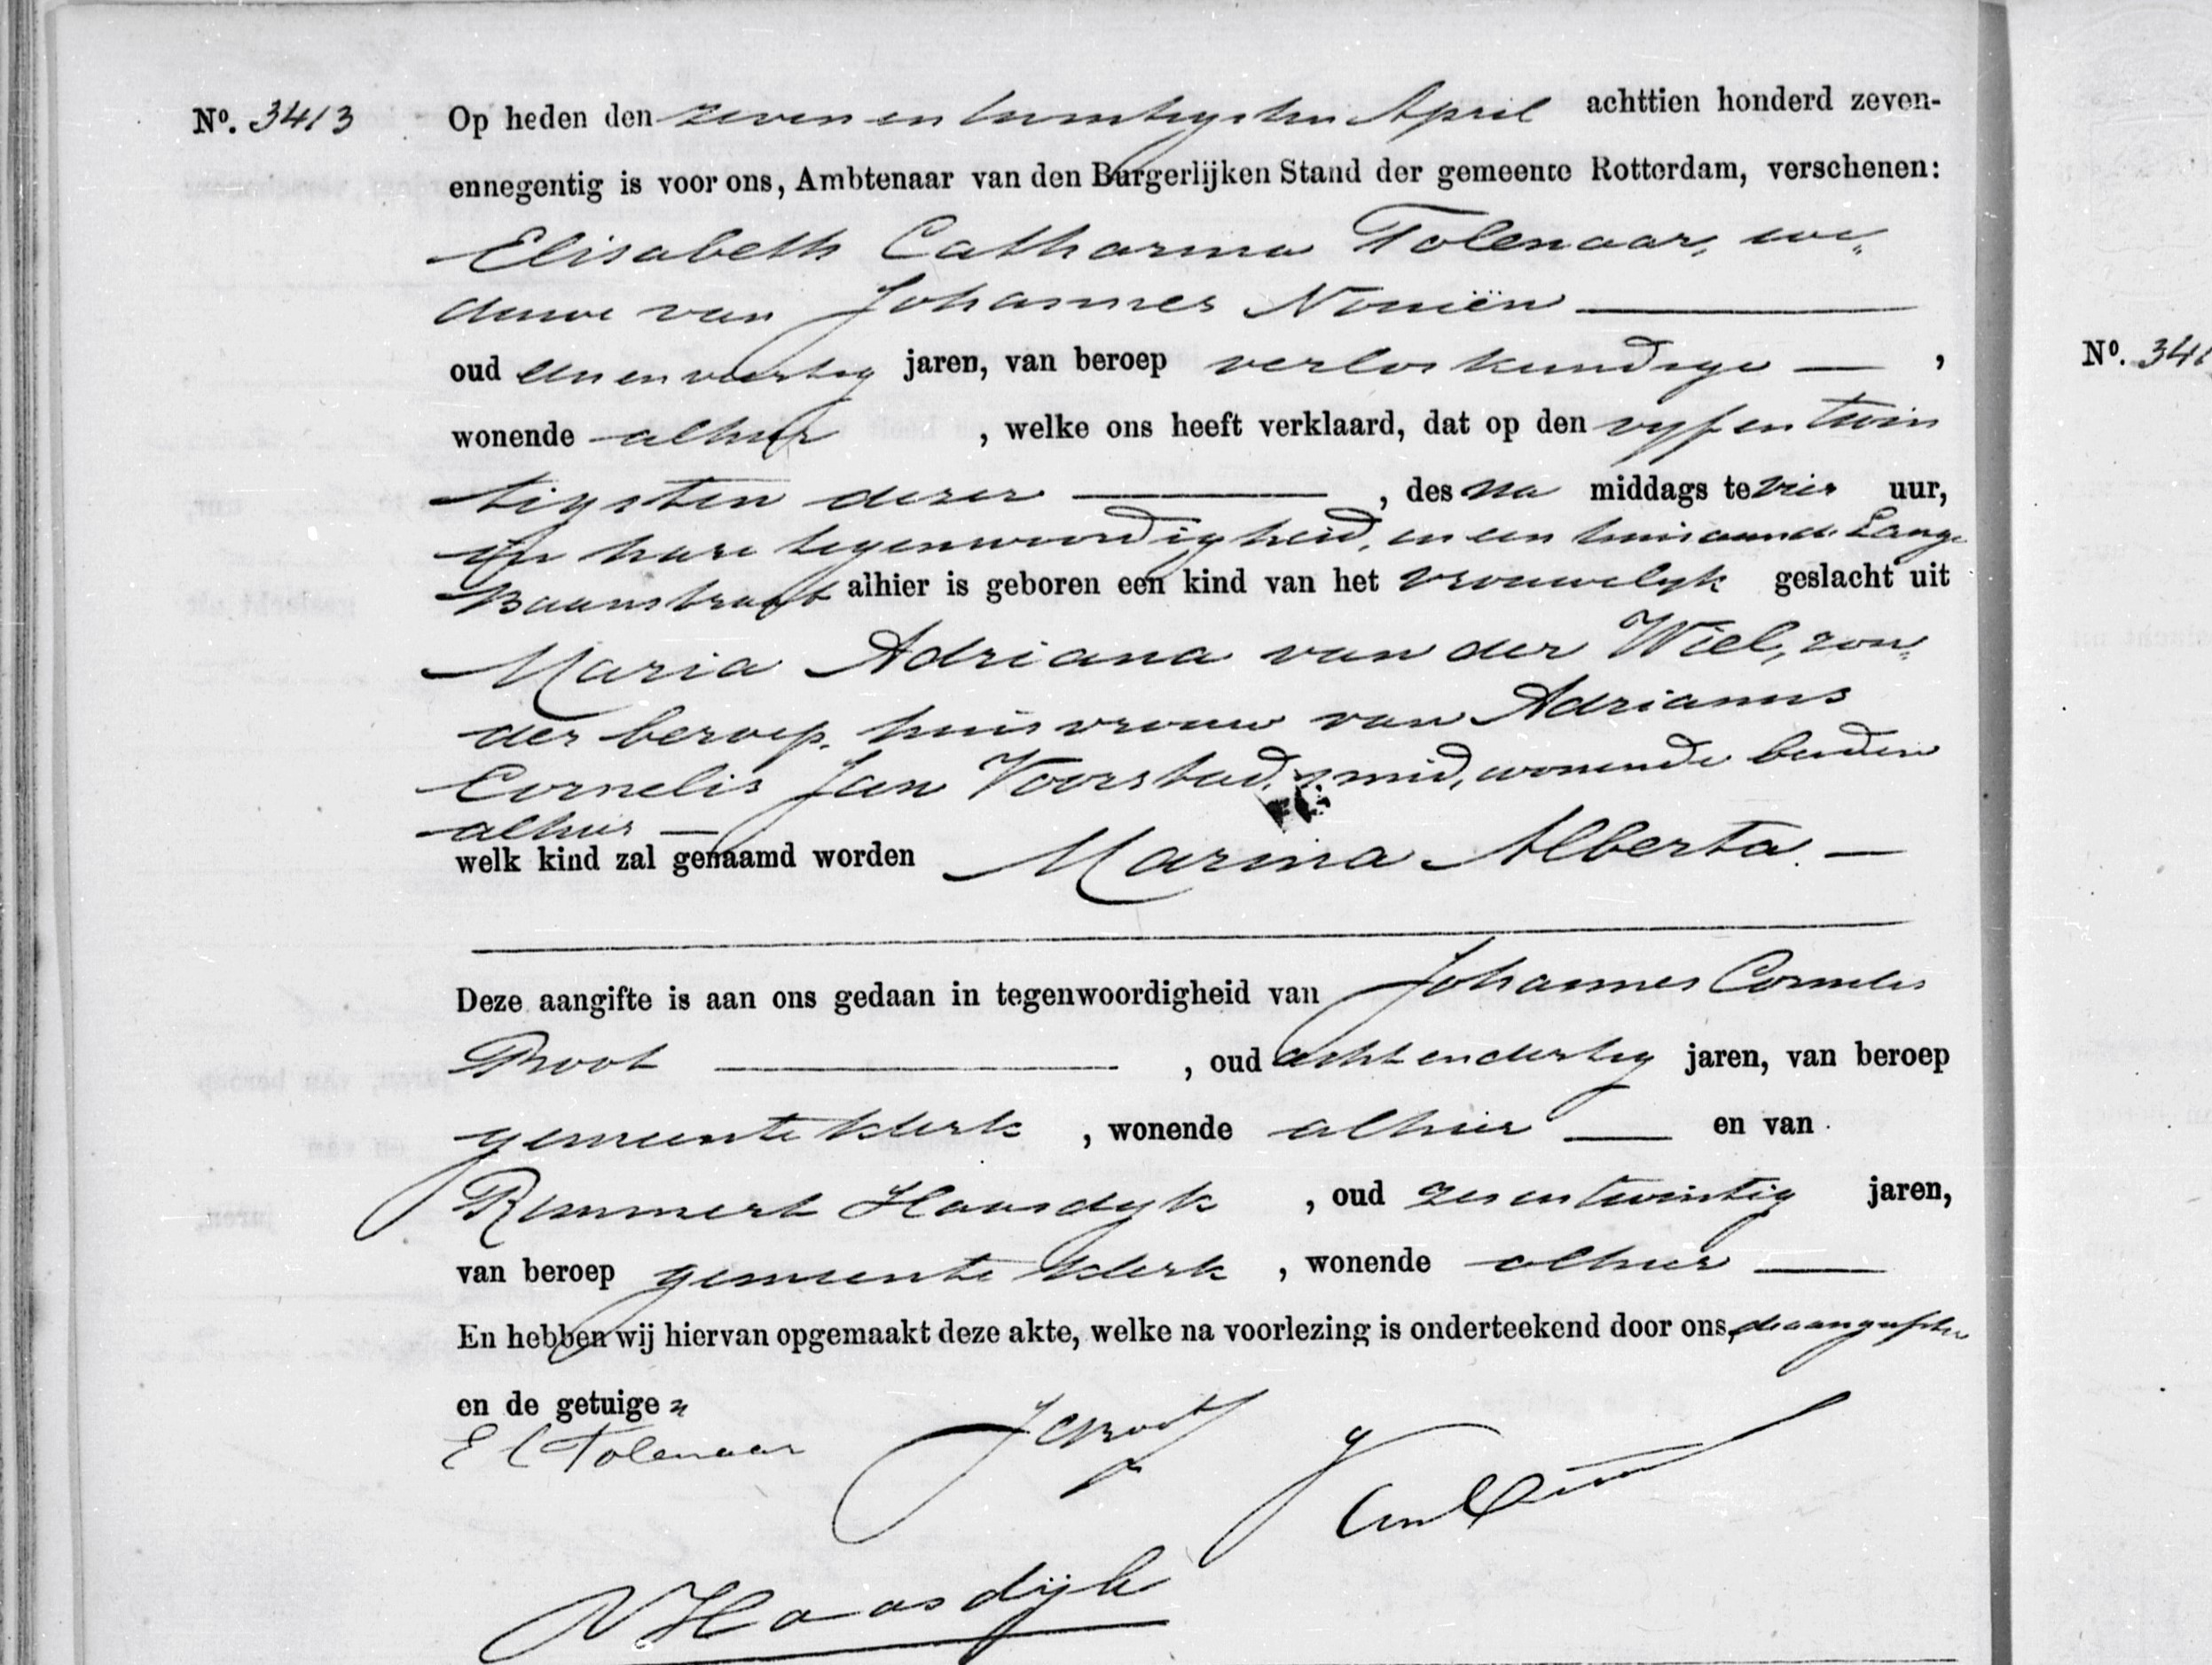 Nº. 3413 Op heden den zeven en twintigsten April achttien honderd zeven-
ennegentig is voor ons, Ambtenaar van den Burgerlijken Stand der gemeente Rotterdam, verschenen:
Elisabeth Catharina Tolenaar, we„
duwe van Johannes Nouiën
oud een en veertig jaren, van beroep verloskundige ,
wonende alhier , welke ons heeft verklaard, dat op den vyf en twin
tigsten dezer , des na middags te vier uur,
in hare tegenwoordigheid, in een huis aan de Lange
Baanstraat alhier is geboren een kind van het vrouwelyk geslacht uit
Maria Adriana van der Wiel, zon„
der beroep, huisvrouw van Adrianus
Cornelis Jan Voorstad, smid, wonende beiden
alhier
welk kind zal genaamd worden Marina Alberta.
Deze aangifte is aan ons gedaan in tegenwoordigheid van Johannes Cornelis
Broot , oud acht en dertig jaren, van beroep
gemeente klerk , wonende alhier en van
Remmert Haasdyk , oud zes en twintig jaren,
van beroep gemeente klerk , wonende alhier
En hebben wij hiervan opgemaakt deze akte, welke na voorlezing is onderteekend door ons, de aangeefster
en de getuigen
E C Tolenaar JCBroot
RHaasdijk
Nº. 341